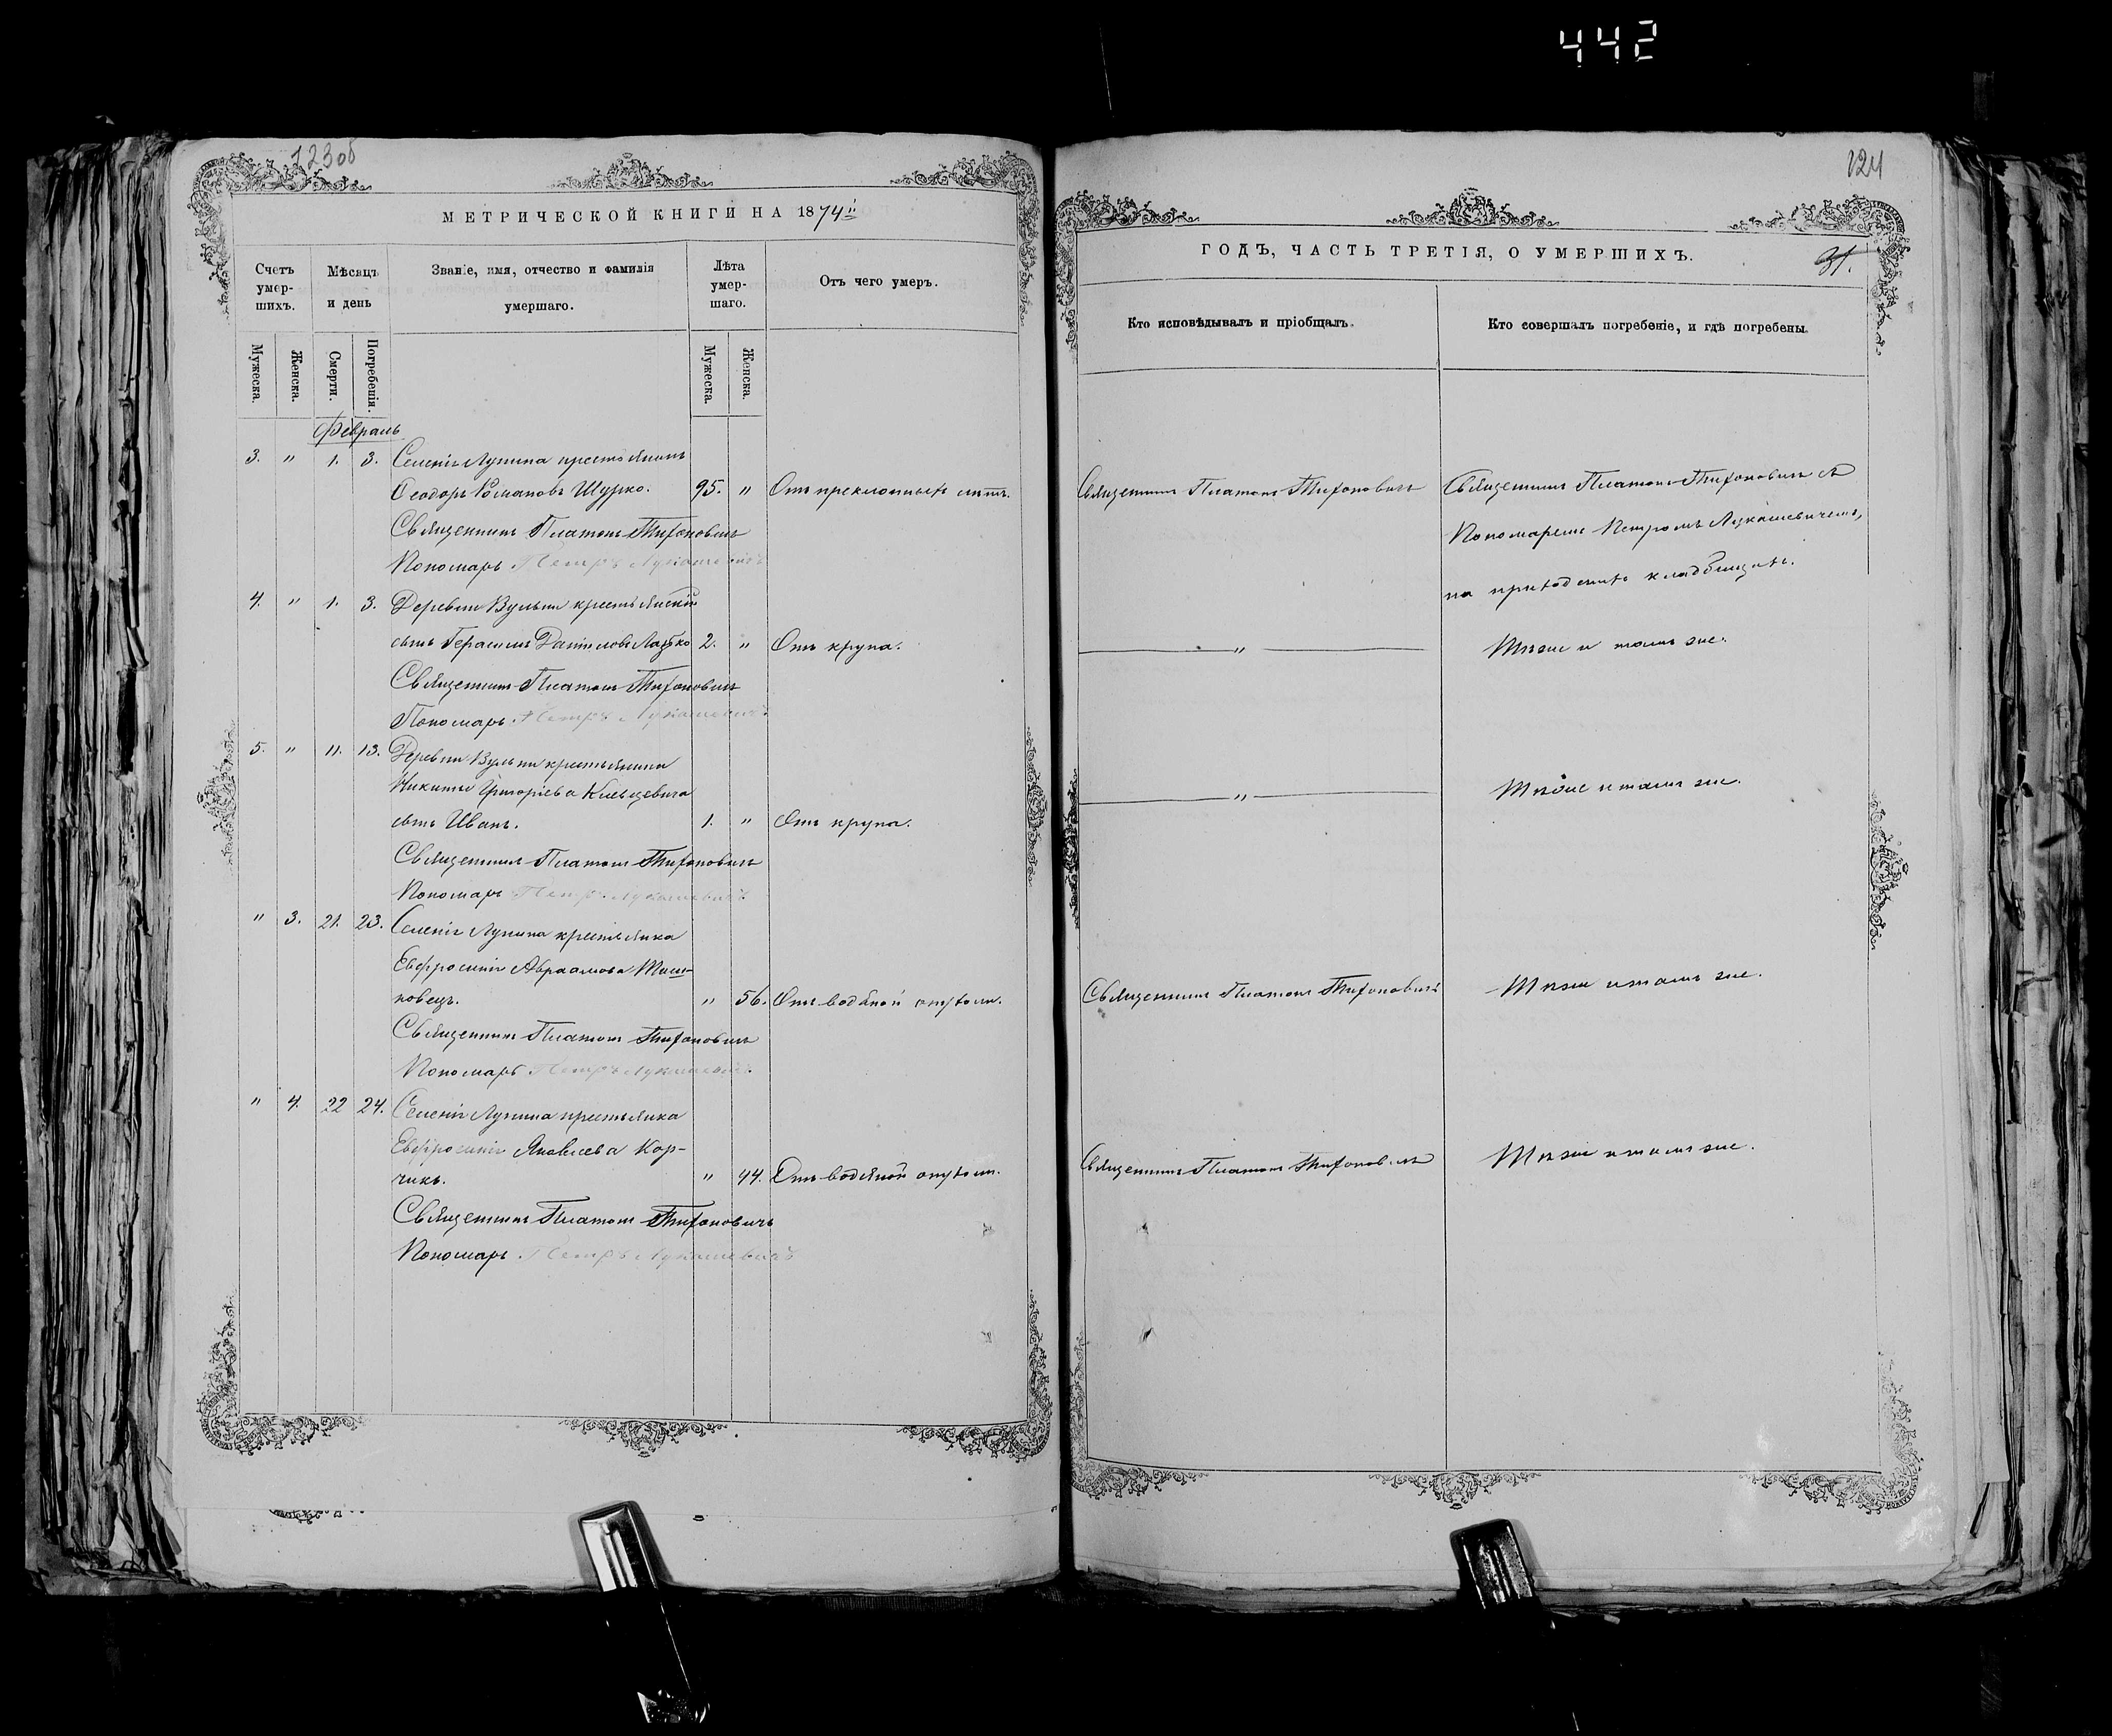 442
123об
МЕТРИЧЕСКОЙ КНИГИ НА 1874й
Счетъ умер-шихъ.
Мѣсяцъ и день
Званіе, имя, отчество и фамилія умершаго.
Лѣта умер-шаго.
Отъ чего умеръ.
Мужеска.
Женска.
Смерти.
Погребенія.
Мужеска.
Женска.
Февраль
3. " 1. 3. Селенія Лунина крестьянинъ
Ѳеодоръ Романовъ Шурко. 95. " Отъ преклонныхъ лѣтъ.
Священникъ Платонъ Тихоновичъ
Пономарь Петръ Лукашевичъ
4. " 1. 3. Деревни Вульки крестьянскій
сынъ Герасимъ Даніиловъ 2. " Отъ крупа.
Священникъ Платонъ Тихоновичъ
Пономарь Петръ Лукашевичъ
5. " 11. 13. Деревни Вульки крестьянина
Никиты Григоріева
сынъ Иванъ. 1. " Отъ крупа.
Священникъ Платонъ Тихоновичъ
Пономарь Петръ Лукашевичъ
" 3. 21. 23. Селенія Лунина крестьянка
Евфросинія Авраамова
новецъ. " 56. Отъ водяной опухоли.
Священникъ Платонъ Тихоновичъ
Пономарь Петръ Лукашевичъ
" 4. 22 24. Селенія Лунина крестьянка
Евфросинія Яковлева Кор-
чикъ. " 44. Отъ водяной опухоли.
Священникъ Платонъ Тихоновичъ
Пономарь Петръ Лукашевичъ
124
ГОДЪ, ЧАСТЬ ТРЕТІЯ, О УМЕРШИХЪ.
31.
Кто исповѣдывалъ и пріобщалъ.
Кто совершалъ погребеніе, и гдѣ погребены.
Священникъ Платонъ Тихоновичъ
Священникъ Платонъ Тихоновичъ съ
Пономаремъ Петромъ Лукашевичемъ,
на приходскомъ кладбищѣ.
" Тѣже и тамъ же.
" Тѣже и тамъ же.
Священникъ Платонъ Тихоновичъ Тѣже и тамъ же.
Священникъ Платонъ Тихоновичъ Тѣже и тамъ же.